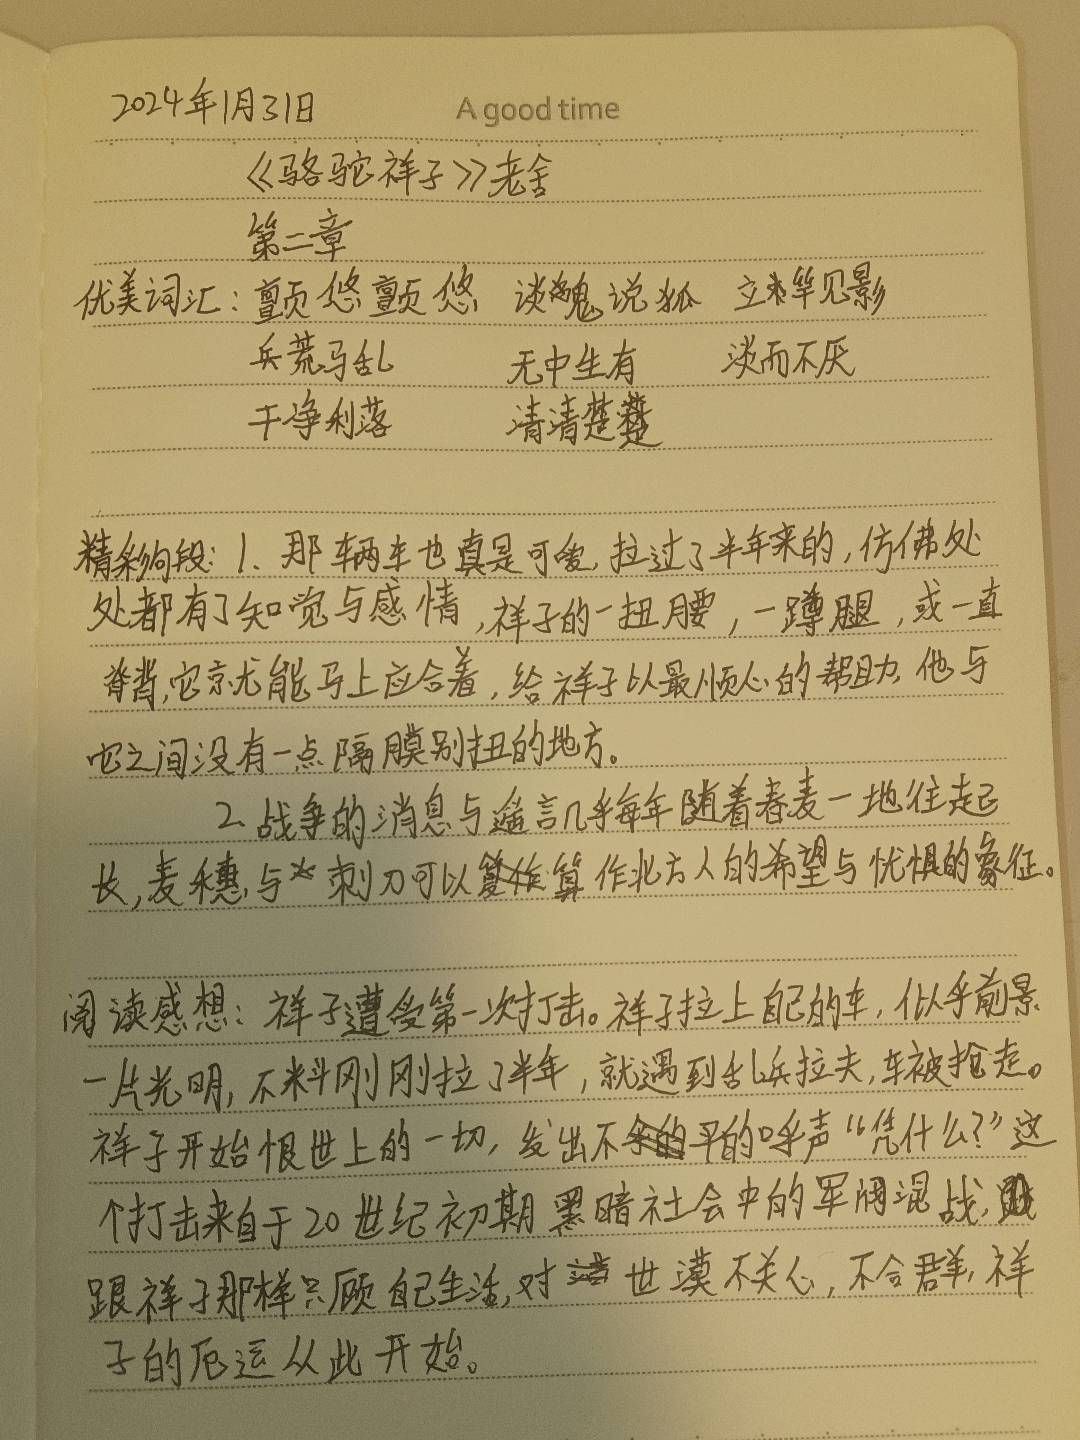 2024年1月31日
A good time
《骆驼祥子》老舍
第二章
优美词汇：颤悠颤悠 谈魂说狐 立竿见影
兵荒马乱 无中生有 淡而不厌
干净利落 清清楚楚
精彩句段：1、那辆车也真是可爱，拉过了半年来的，仿佛处
处都有了知觉与感情，祥子的一扭腰，一蹲腿，或一直
脊背，它就能马上应合着，给祥子以最顺心的帮助，他与
它之间没有一点隔膜别扭的地方。
2、战争的消息与谣言几乎每年随着春麦一地往起
长，麦穗与刺刀可以算作北方人的希望与忧惧的象征。
阅读感想：祥子遭受第一次打击。祥子拉上自己的车，似乎前景
一片光明，不料刚刚拉了半年，就遇到乱兵拉夫，车被抢走。
祥子开始恨世上的一切，发出不平的呼声“凭什么？”这
个打击来自于20世纪初期黑暗社会中的军阀混战，
跟祥子那样只顾自己生活，对世漠不关心，不合群，祥
子的厄运从此开始。